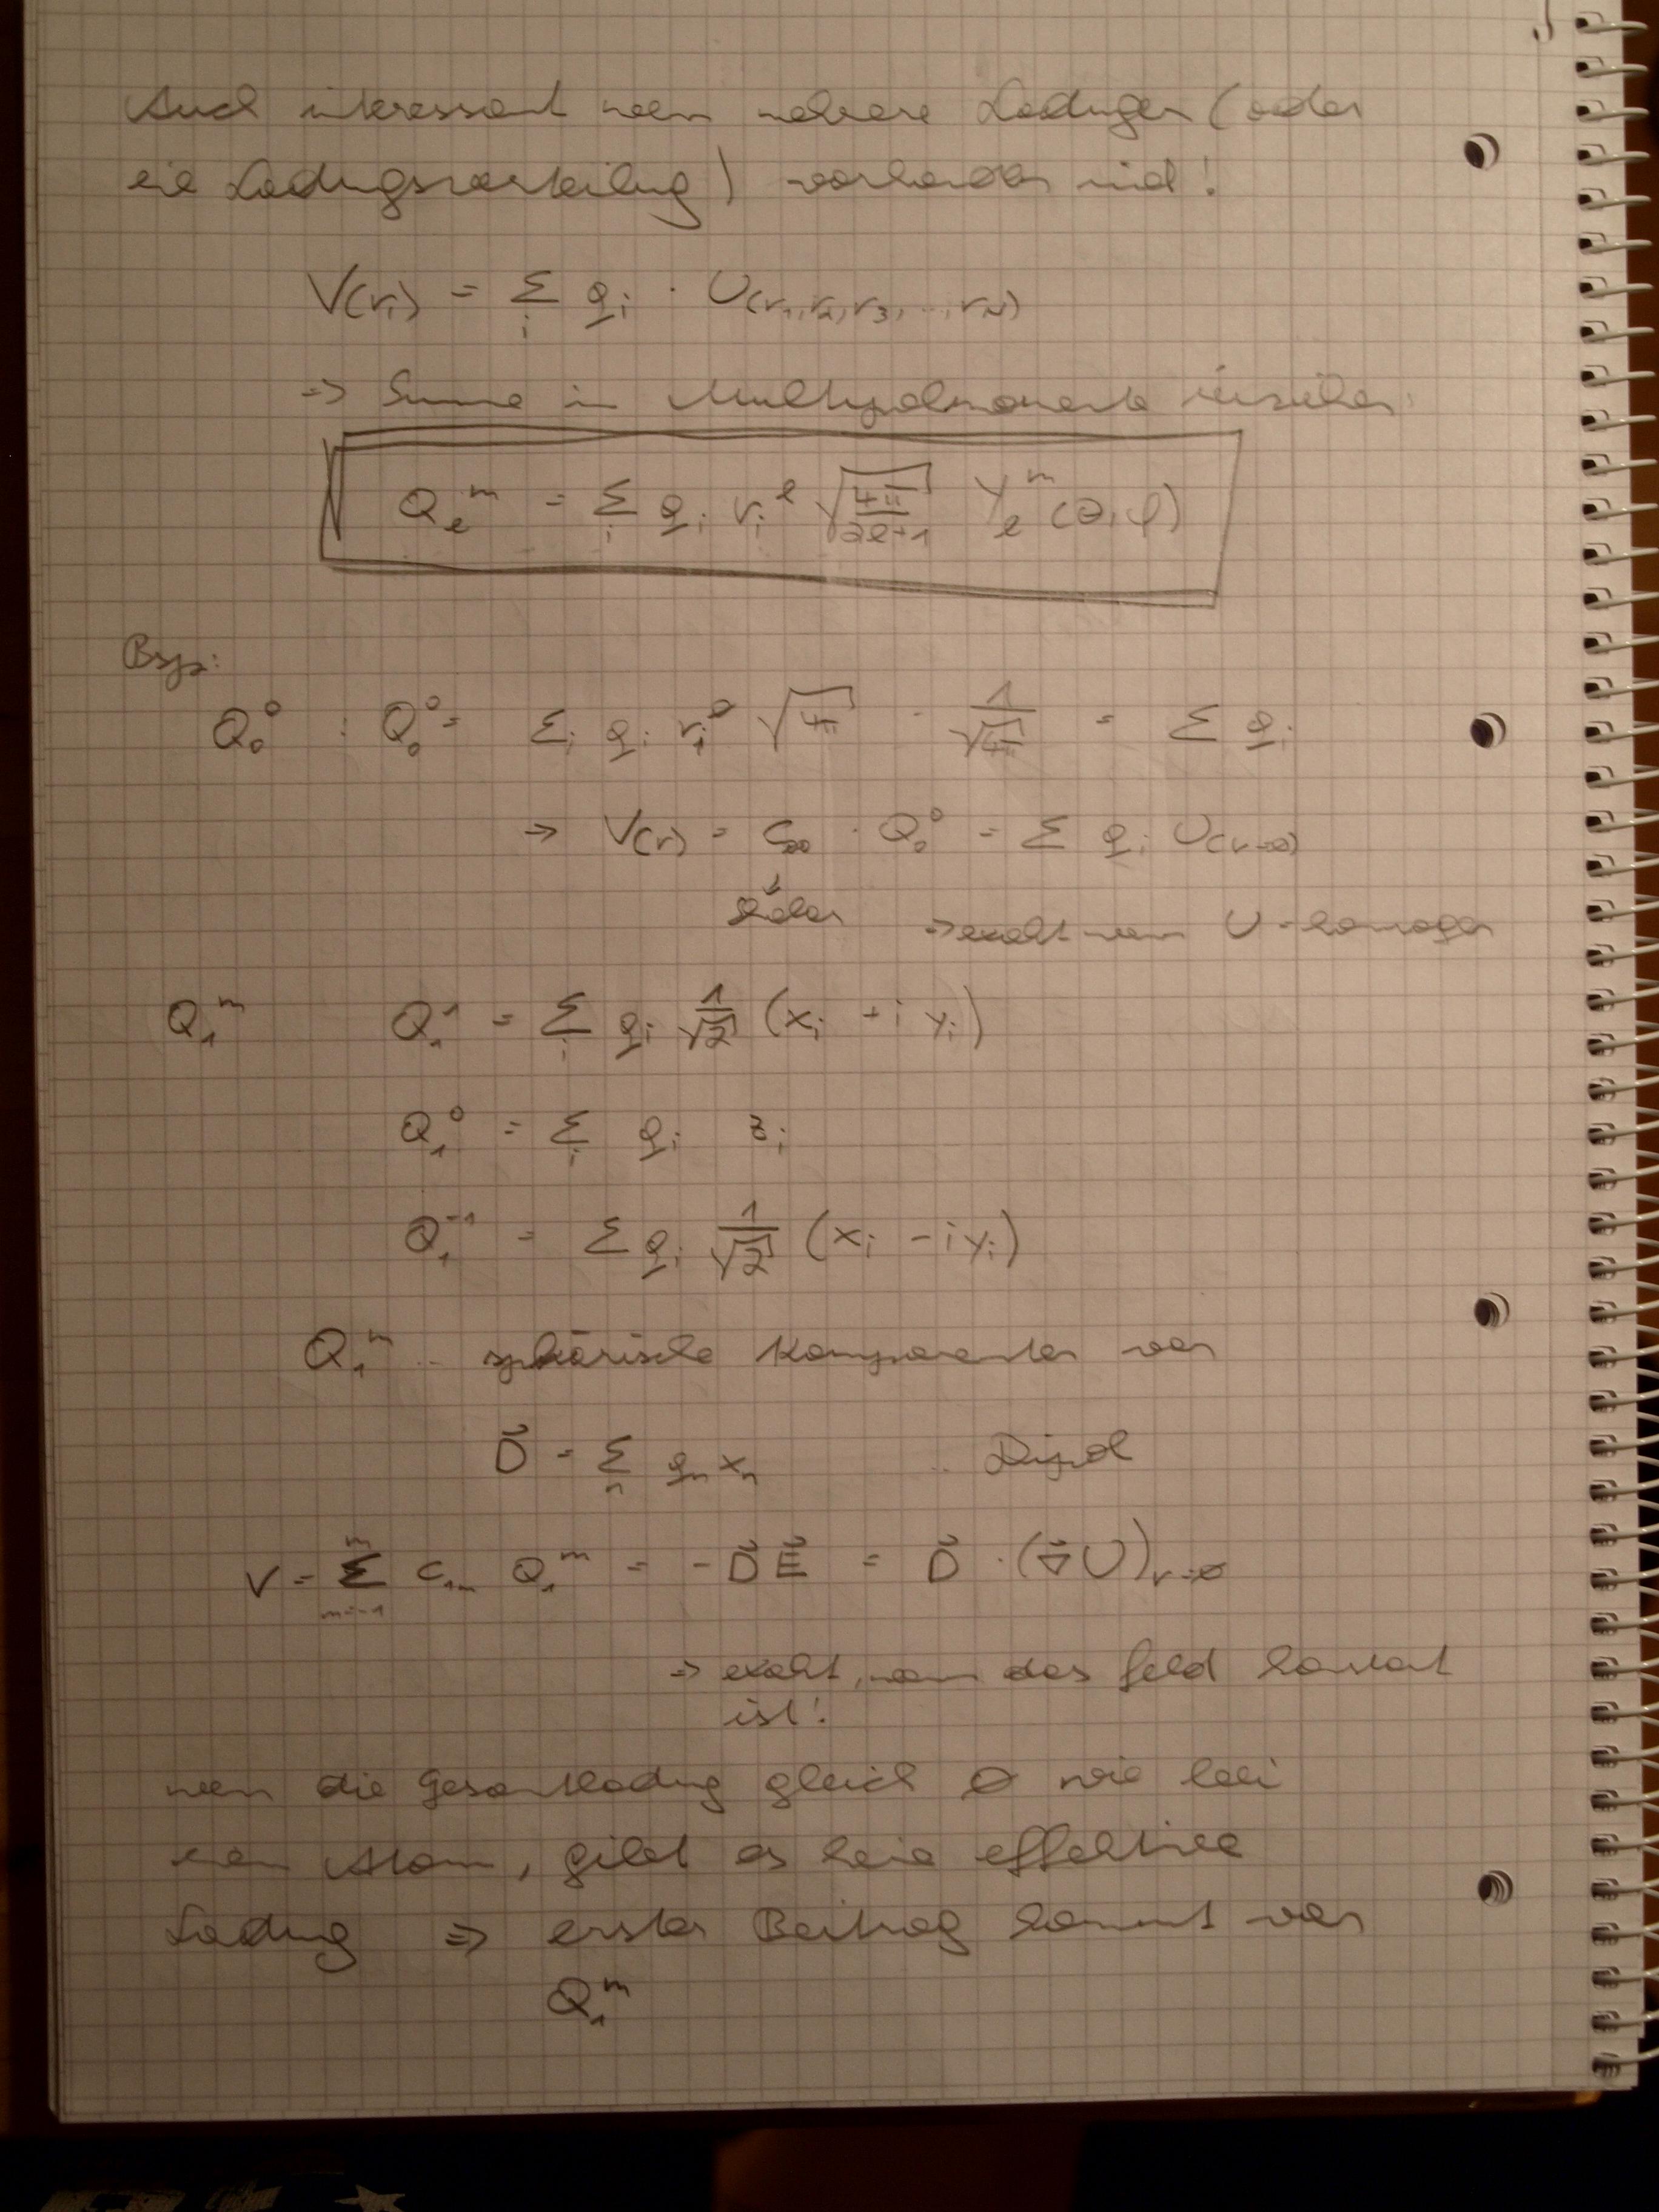 Auch interessant wenn mehrere Ladungen (oder
eine Ladungsverteilung) vorhanden sind!
V(ri) = Σ_i q_i · U(r1, r2, r3, ..., rN)
=> Summe in Multipolmomente
Q_l^m = Σ_i q_i r_i^l √(4π/(2l+1)) Y_l^m (θ, φ)
Bsp:
Q_0^0 : Q_0^0 = Σ_i q_i r_i^0 √4π · 1/√4π = Σ q_i
=> V(r) = C_00 · Q_0^0 = Σ q_i U(r=0)
=> exakt wenn U-homogen
Q_1^m Q_1^1 = Σ_i q_i 1/√2 (x_i + i y_i)
Q_1^0 = Σ_i q_i z_i
Q_1^-1 = Σ q_i 1/√2 (x_i - i y_i)
Q_1^m .. sphärische Komponenten von
D⃗ = Σ_n q_n x_n .. Dipol
V = Σ_{m=-1}^m C_1m Q_1^m = - D⃗ E⃗ = D⃗ · (∇⃗ U)_{r=0}
=> exakt, wenn das Feld konstant
ist!
wenn die Gesamtladung gleich 0 wie bei
einem Atom, gibt es keine effektive
Ladung => erster Beitrag kommt von
Q_1^m